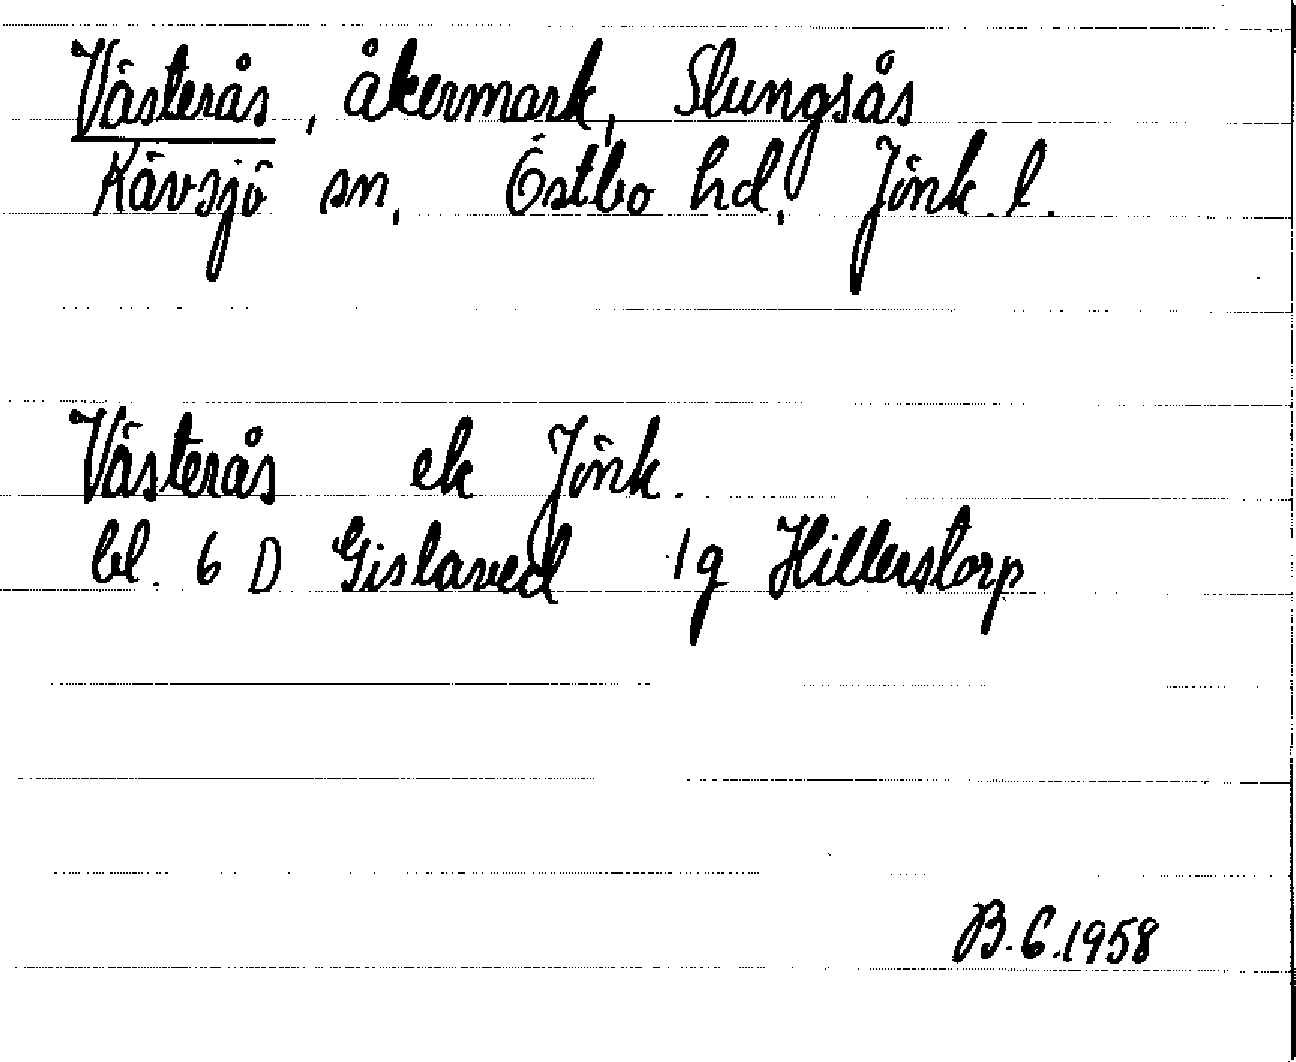 Västerås, åkermark, Slungsås
Kävsjö sn, Östbo hd, Jönk. l.
Västerås ek Jönk.
bl. 6 D Gislaved 1g Hillerstorp
B.G.1958